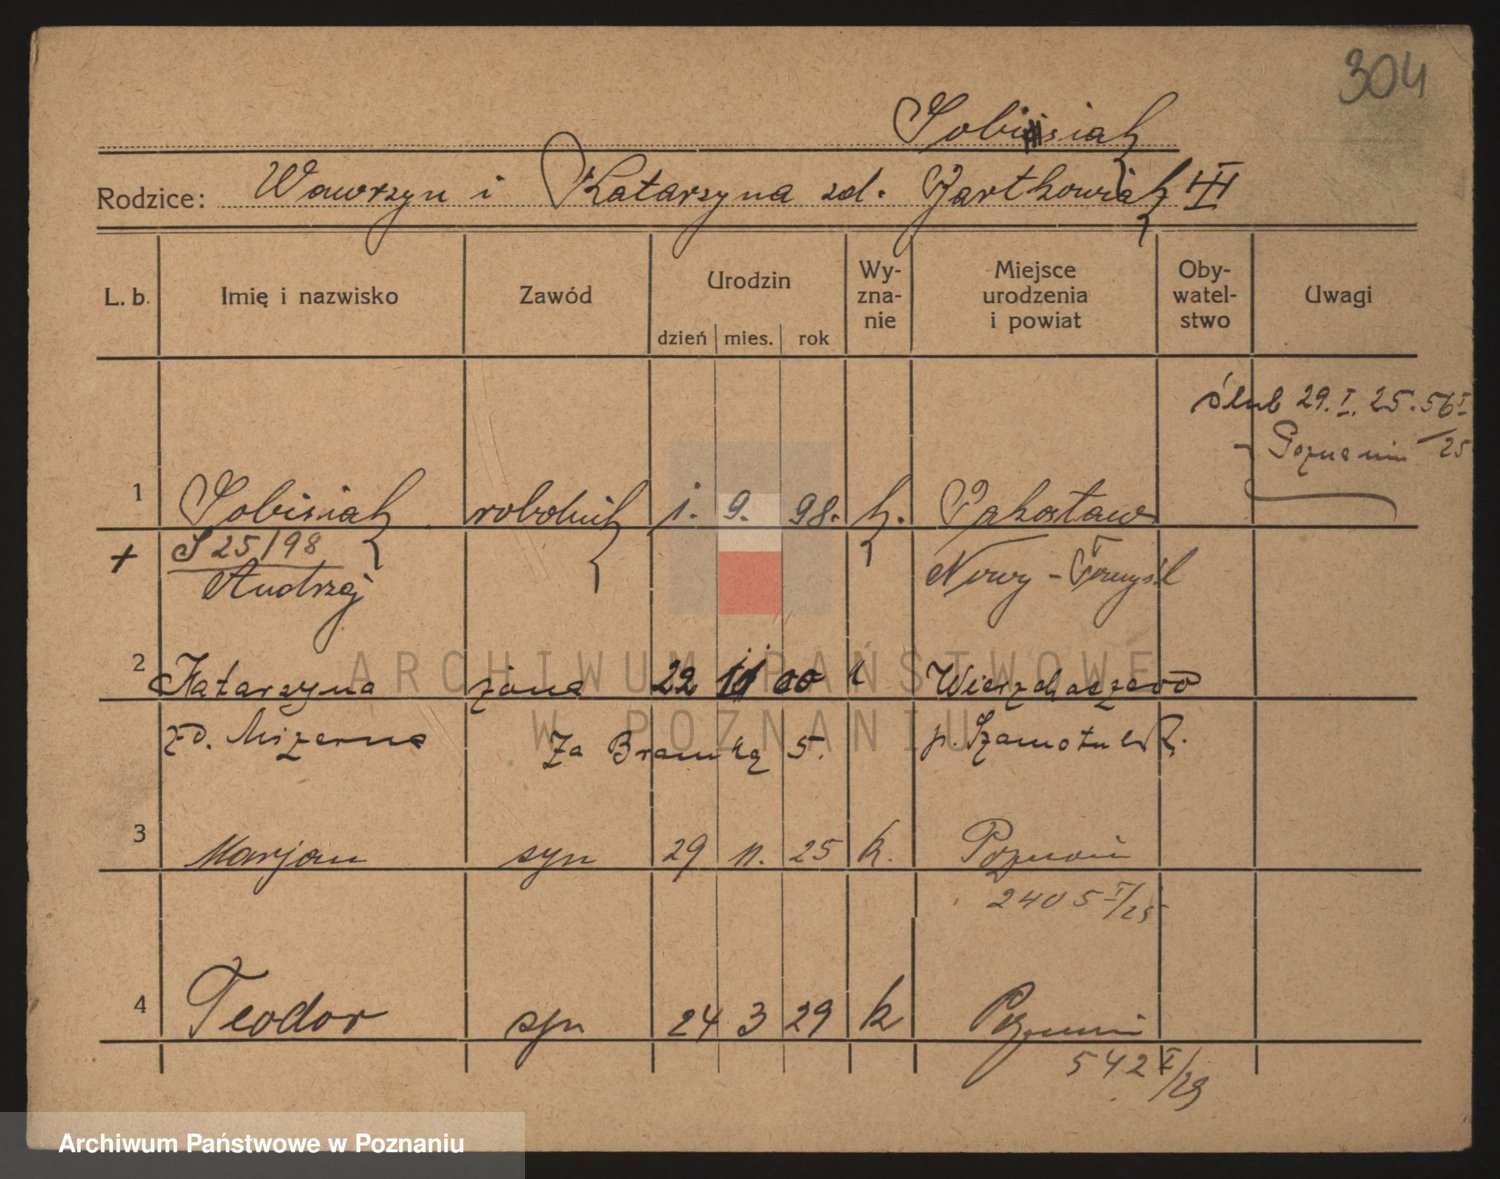 304
Sobisiak
Rodzice: Wawrzyn i Katarzyna zd. Bartkowiak III
L. b. Imię i nazwisko Zawód Urodzin dzień mies. rok Wy-zna-nie Miejsce urodzenia i powiat Oby-watel-stwo Uwagi
ślub 29. I. 25. 56 I/25
Poznaniu
1 Sobisiak robotnik 1. 9. 98. k. Pakosław
+ S 25/98 Nowy-Tomyśl
Andrzej
2 Katarzyna żona 22 11 00 k Wierzchaczewo
zd. Mizerna Za Bramką 5. p. Szamotuły
3 Marjan syn 29 11. 25 k. Poznań
2405 I/25
4 Teodor syn 24 3 29 k Poznań
542 I/29
ARCHIWUM PAŃSTWOWE
W POZNANIU
Archiwum Państwowe w Poznaniu